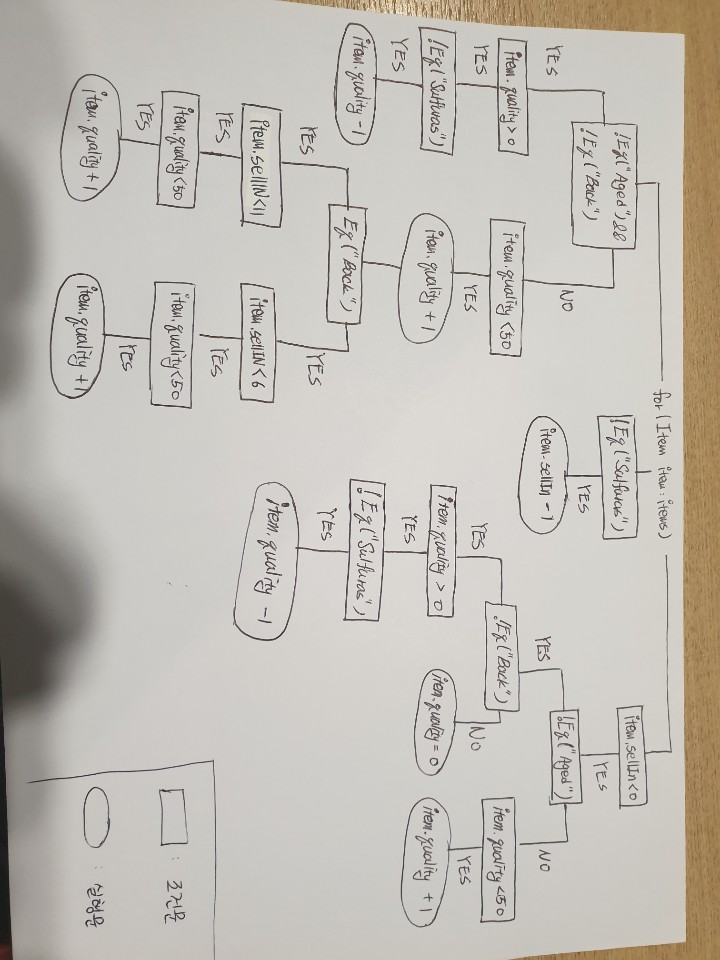 for ( Item item : items)
!Eq("Aged") &&
!Eq("Back")
YES
NO
item.quality > 0
YES
!Eq("Sulfuras")
YES
item.quality - 1
item.quality < 50
YES
item.quality + 1
Eq("Back")
YES
YES
item.sellIN < 11
YES
item.quality < 50
YES
item.quality + 1
item.sellIN < 6
YES
item.quality < 50
YES
item.quality + 1
!Eq("Sulfuras")
YES
item.sellIn - 1
item.sellIn < 0
YES
!Eq("Aged")
YES
NO
!Eq("Back")
YES
NO
item.quality > 0
YES
!Eq("Sulfuras")
YES
item.quality - 1
item.quality = 0
item.quality < 50
YES
item.quality + 1
: 조건문
: 실행문